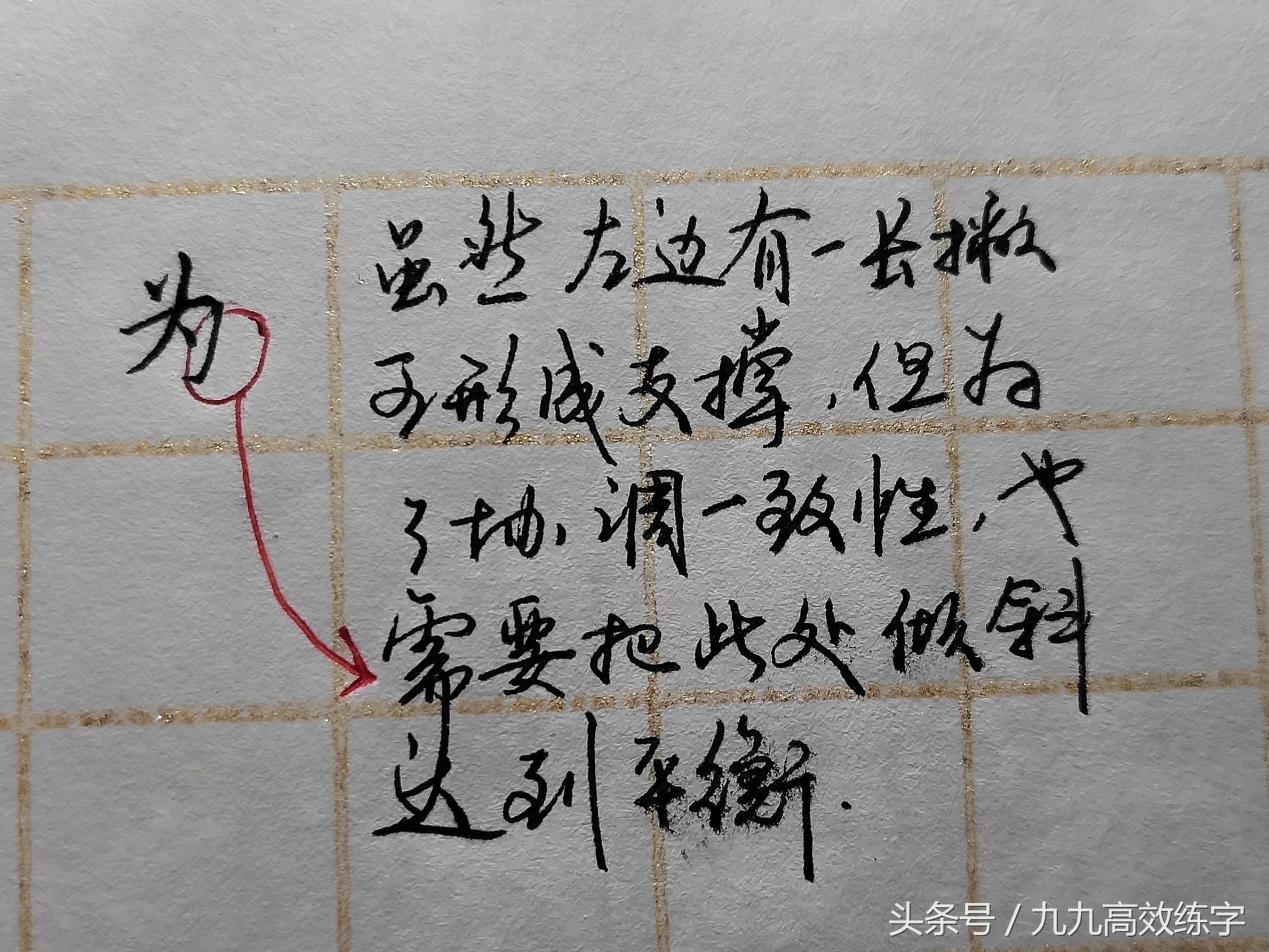 为
虽然左边有一长撇
可形成支撑,但为
了协调一致性,也
需要把此处倾斜
达到平衡.
头条号 / 九九高效练字